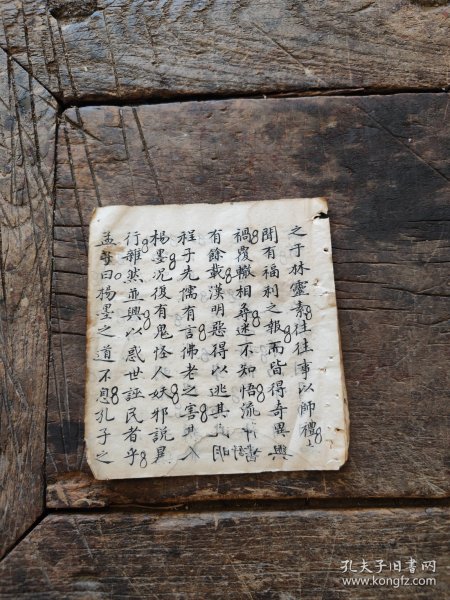 之于林靈素往往事以師禮
聞有福利之報而皆得奇異
禍覆轍相尋迷不知悟流
有餘哉漢明惡得以逃其
程子先儒有言佛老之害
楊墨况復有鬼怪人妖邪說異
行雜然並興以惑世誣民者乎
孟聖曰楊墨之道不息孔子之
孔夫子旧书网
www.kongfz.com